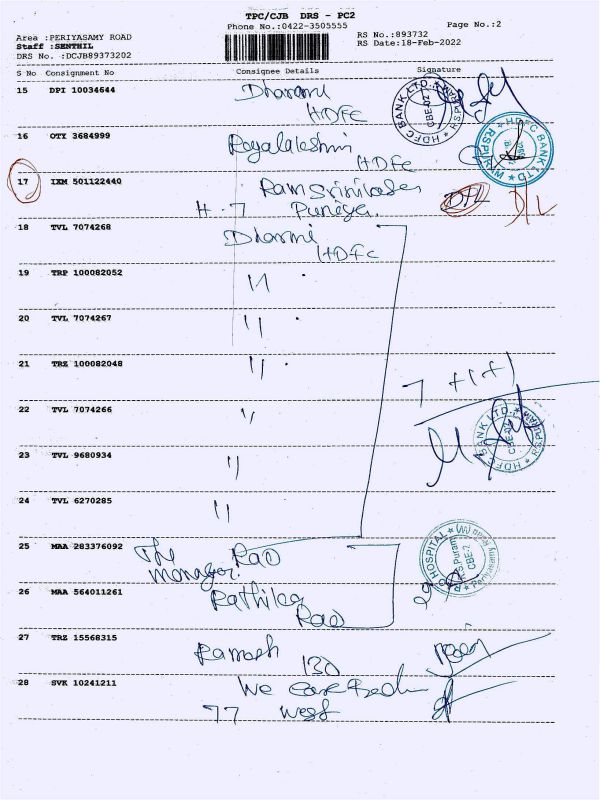 TPC/CJB DRS - PC2
Phone No.:0422-3505555
Page No.:2
Area :PERIYASAMY ROAD
Staff :SENTHIL
DRS No. :DCJB89373202
RS No.:893732
RS Date:18-Feb-2022
S No Consignment No Consignee Details Signature
15 DPI 10034644 Dharani
HDFC
HDFC BANK LTD. RSPURAM CBE-02
16 OTY 3684999 Rajalakshmi
HDFC
HDFC BANK LTD RSPURAM
17 IXM 501122440 Ram Srinivasan
H-7 D/L D/L
18 TVL 7074268 Dharani
HDFC
19 TRP 100082052 "
20 TVL 7074267 "
21 TRZ 100082048 "
22 TVL 7074266 "
HDFC BANK LTD. RSPURAM CBE-02
23 TVL 9680934 "
24 TVL 6270285 "
25 MAA 283376092 The Manager. Rao
RAO HOSPITAL R.S. Puram CBE-2 Periyasamy Road (W)
26 MAA 564011261 Rao
27 TRZ 15568315 Ramesh 130
28 SVK 10241211 We care
77 West